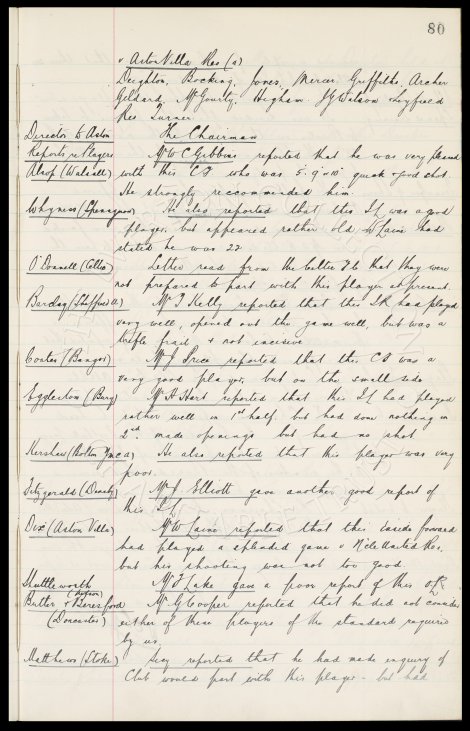 80
v Aston Villa Res (a)
Deighton, Bocking, Jones, Mercer, Griffiths, Archer
Geldard, McGourty, Higham. JG Watson Leyfield
Res Turner.
Director to Aston The Chairman
Reports re Players Mr W C Gibbins reported that he was very pleased
Alsop (Walsall) with this CF who was 5. 9 - 10 quick & good shot.
He strongly reccommended him.
Whyness (Glenavon) He also reported that this I.L was a good
player, but appeared rather old. Mr Laine had
stated he was 22
O'Donnell (Celtic) Letter read from the Celtic F.C that they were
not prepared to part with this player at present.
Barclay (Sheffield U) Mr T Kelly reported that this I.R had played
very well, opened out the game well, but was a
trifle frail & not incisive
Coates (Bangor) Mr J Price reported that this C.F was a
very good player, but on the small side
Eggleston (Bury) Mr H Hart reported that this I.L had played
rather well in 1st half, but had done nothing in
2nd. made openings but had no shot
Kershaw (Bolton Ymca) He also reported that this player was very
poor.
Fitzgerald (Dundy) Mr J Elliott gave another good report of
this
Dix (Aston Villa) Mr W Laine reported that this inside forward
had played a splendid game v N'cle United Res.
but his shooting was not too good.
Shuttleworth Mr T Lake gave a poor report of this O/R
Butler & Beresford Mr G Cooper reported that he did not consider
(Doncaster) either of these players of the standard required
by us.
Matthews (Stoke) Secy reported that he had made enquiry if
Club would part with this player - but had